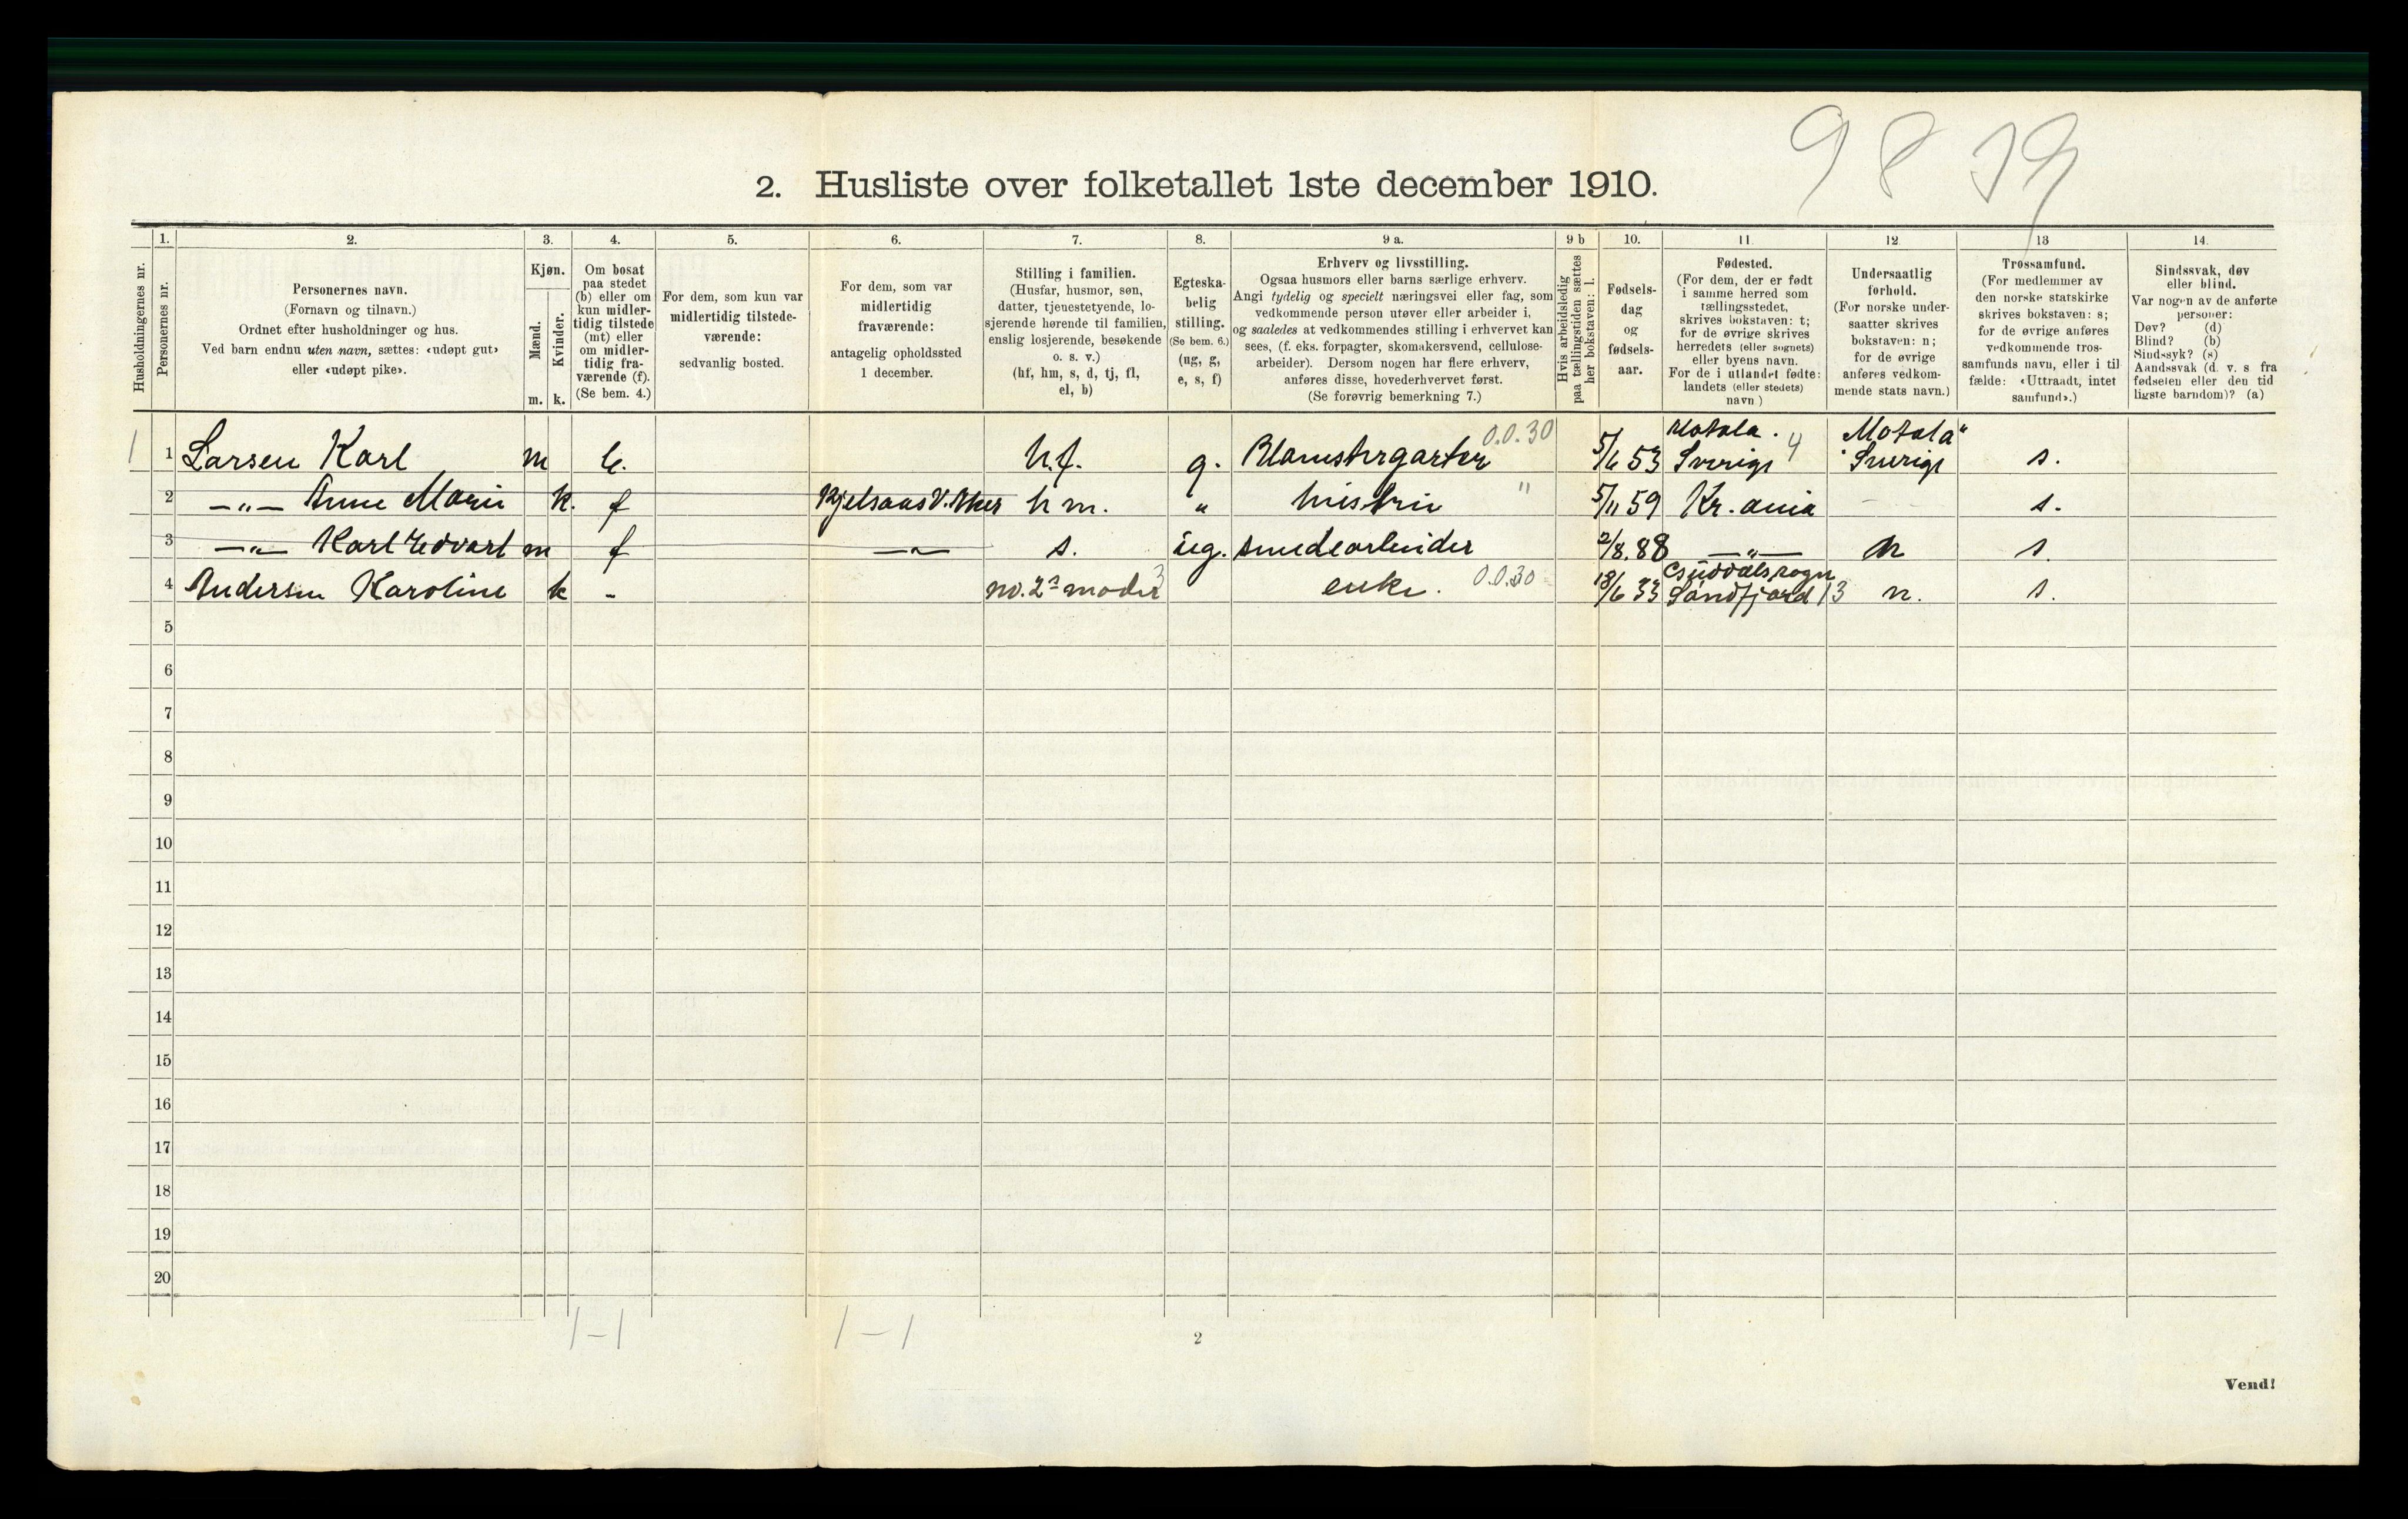 98 39
2. Husliste over folketallet 1ste december 1910.
Husholdningernes nr.
1.
Personernes nr.
2.
Personernes navn.
(Fornavn og tilnavn.)
Ordnet efter husholdninger og hus.
Ved barn endnu uten navn, sættes: «udøpt gut»
eller «udøpt pike».
3.
Kjøn.
Mænd.
Kvinder.
m. k.
4.
Om bosat
paa stedet
(b) eller om
kun midler-
tidig tilstede
(mt) eller
om midler-
tidig fra-
værende (f).
(Se bem. 4.)
5.
For dem, som kun var
midlertidig tilstede-
værende:
sedvanlig bosted.
6.
For dem, som var
midlertidig
fraværende:
antagelig opholdssted
1 december.
7.
Stilling i familien.
(Husfar, husmor, søn,
datter, tjenestetyende, lo-
sjerende hørende til familien,
enslig losjerende, besøkende
o. s. v.)
(hf, hm, s, d, tj, fl,
el, b)
8.
Egteska-
belig
stilling.
(Se bem. 6.)
(ug, g,
e, s, f)
9 a.
Erhverv og livsstilling.
Ogsaa husmors eller barns særlige erhverv.
Angi tydelig og specielt næringsvei eller fag, som
vedkommende person utøver eller arbeider i,
og saaledes at vedkommendes stilling i erhvervet kan
sees, (f. eks. forpagter, skomakersvend, cellulose-
arbeider). Dersom nogen har flere erhverv,
anføres disse, hovederhvervet først.
(Se forøvrig bemerkning 7.)
9 b
Hvis arbeidsledig
paa tællingstiden sættes
her bokstaven: l.
10.
Fødsels-
dag
og
fødsels-
aar.
11.
Fødested.
(For dem, der er født
i samme herred som
tællingsstedet,
skrives bokstaven: t;
for de øvrige skrives
herredets (eller sognets)
eller byens navn.
For de i utlandet fødte:
landets (eller stedets)
navn)
12.
Undersaatlig
forhold.
(For norske under-
saatter skrives
bokstaven: n;
for de øvrige
anføres vedkom-
mende stats navn.)
13
Trossamfund.
(For medlemmer av
den norske statskirke
skrives bokstaven: s;
for de øvrige anføres
vedkommende tros-
samfunds navn, eller i til
fælde: «Uttraadt, intet
samfund».)
14.
Sindssvak, døv
eller blind.
Var nogen av de anførte
personer:
Døv? (d)
Blind? (b)
Sindssyk? (s)
Aandssvak (d. v. s fra
fødselen eller den tid
ligste barndom)? (a)
1 1 Larsen Karl m b. h.f. g. Blomstergarter 0.0.30 5/6 53 Motala. Sverige 4 Motala" Sverige s.
2 -"- Anne Marie k. f Kjelsaas V. Aker h m. " hustru " 5/11 59 Kr. ania - s.
3 -"- Karl Edvart m f -"- s. ug. smedearbeider 2/8. 88 -"- n s.
4 Andersen Karoline k - no. 2s moder 3 enke. 0.0.30 13/6 33 Søndfjord 13 n. s.
5
6
7
8
9
10
11
12
13
14
15
16
17
18
19
20
1-1 1-1
2
Vend!